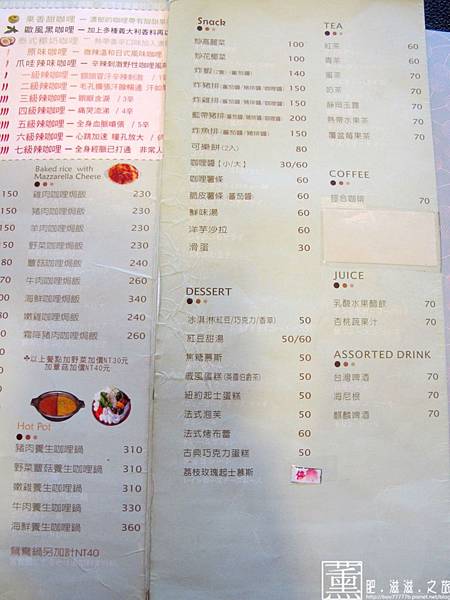 果香甜咖哩
歐風黑咖哩 － 加上多種義大利香料再
泰式椰奶咖哩
原味咖哩 － 微辣溫和日式風味咖哩
爪哇辣味咖哩 － 辛辣刺激野性咖哩風
一級辣咖哩
二級辣咖哩
三級辣咖哩 － 眼眼血淚 / 3辛
四級辣咖哩 － 痛哭流涕 / 4辛
五級辣咖哩 － 全身血脈噴張 / 5辛
六級辣咖哩 － 心跳加速 瞳孔放大
七級辣咖哩 － 全身經脈已打通 非常人
Baked rice with
Mazzarella Cheese
150 雞肉咖哩焗飯 230
150 豬肉咖哩焗飯 230
150 羊肉咖哩焗飯 230
野菜咖哩焗飯 230
蘑菇咖哩焗飯 230
牛肉咖哩焗飯 260
海鮮咖哩焗飯 240
嫩雞咖哩焗飯 240
霜降豬肉咖哩焗飯 240
以上餐點加野菜加價NT30元
加蘑菇加價NT40元
Hot Pot
豬肉養生咖哩鍋 310
野菜蘑菇養生咖哩鍋 310
嫩雞養生咖哩鍋 310
牛肉養生咖哩鍋 330
海鮮養生咖哩鍋 360
鴛鴦鍋另加計NT40
Snack
炒高麗菜 100
炒花椰菜 100
炸蝦(2隻)(蕃茄醬) 60
炸豬排(蕃茄醬/豬排醬/咖哩醬) 200
炸雞排(蕃茄醬/豬排醬/咖哩醬) 200
藍帶豬排(蕃茄醬/豬排醬) 200
炸魚排(蕃茄醬/豬排醬/咖哩醬) 150
可樂餅(2入) 80
咖哩醬【小/大】 30/60
咖哩薯條 60
脆皮薯條(蕃茄醬) 60
鮮味湯 60
洋芋沙拉 60
滑蛋 30
DESSERT
冰淇淋(紅豆/巧克力/香草) 50
紅豆甜湯 50/60
焦糖慕斯 50
戚風蛋糕(英國伯爵茶) 50
紐約起士蛋糕 50
法式泡芙 50
法式烤布蕾 60
古典巧克力蛋糕 50
荔枝玫瑰起士慕斯
TEA
紅茶 60
青茶 60
蜜茶 70
奶茶 70
靜岡玉露 70
熱帶水果茶 70
覆盆莓果茶 70
COFFEE
綜合咖啡 70
JUICE
乳酸水果醋飲 70
杏桃蔬果汁 70
ASSORTED DRINK
台灣啤酒 70
海尼根 70
麒麟啤酒 70
薰
肥.滋滋.之旅